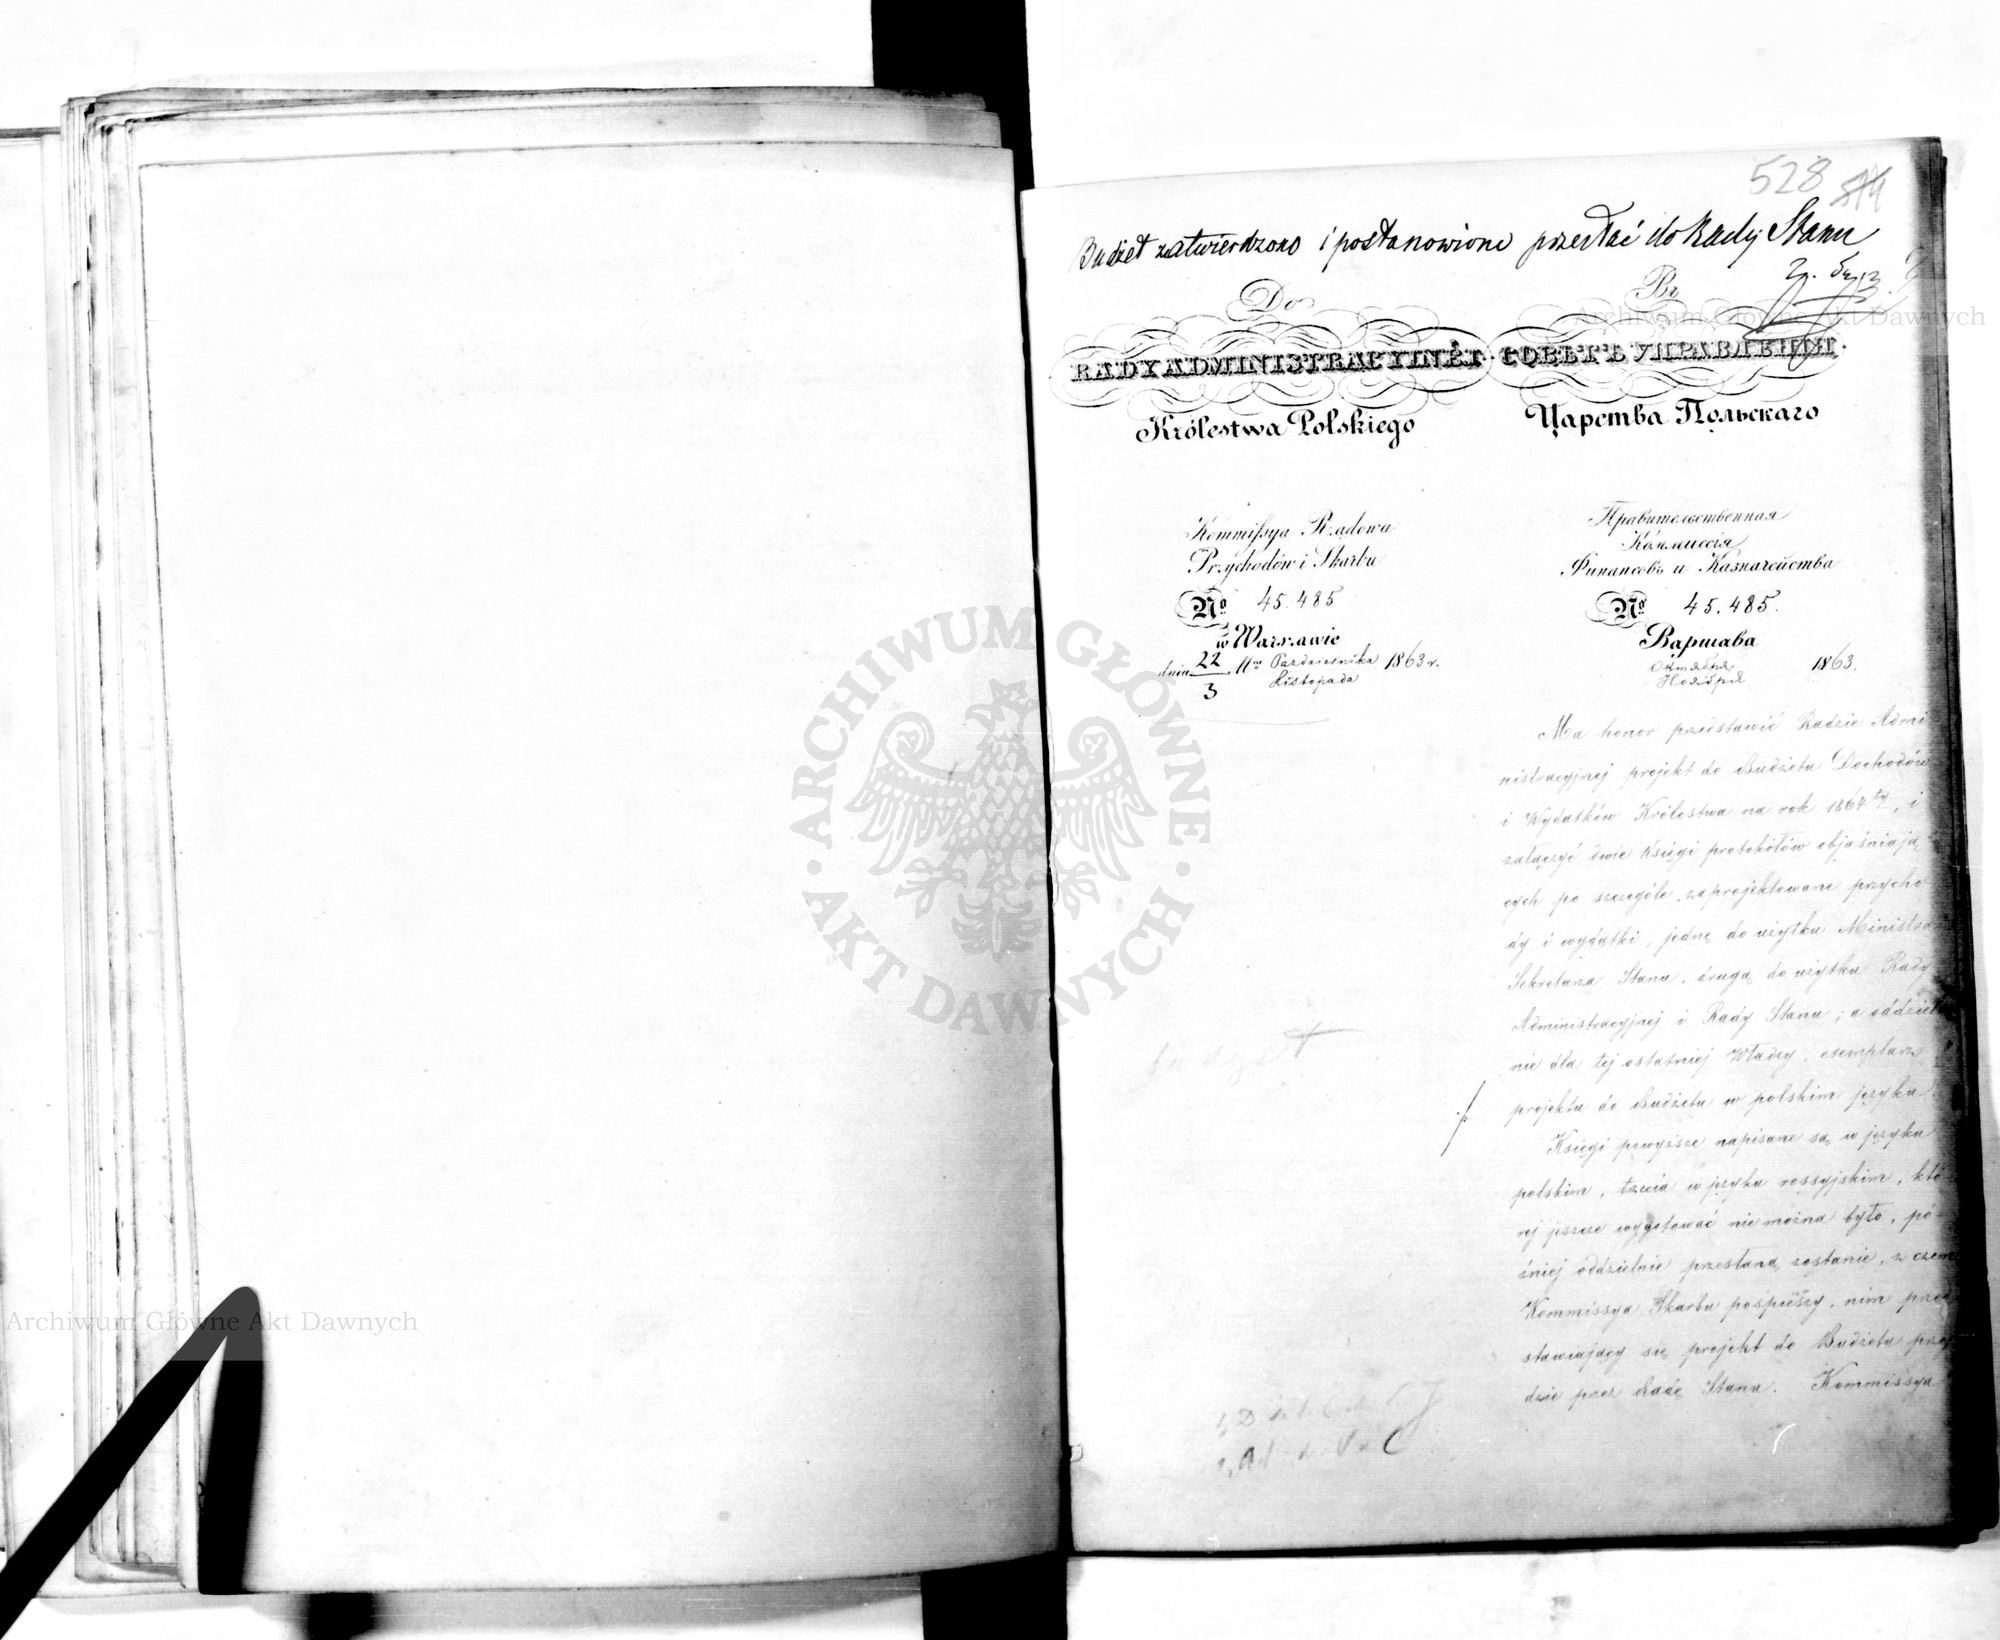 528
Budżet zatwierdzono i postanowiono przesłać do Rady Stanu
Do
RADY ADMINISTRACYINÉJ
Królestwa Polskiego
Въ
СОВѢТЪ УПРАВЛЕНІЯ
Царства Польскаго
Kommissya Rządowa
Przychodów i Skarbu
No 45.485
w Warszawie
dnia 22/3 Października/Listopada 1863 r.
Правительственная
Коммиссія
Финансовъ и Казначейства
No 45.485.
Варшава
Октября
Ноября 1863.
Ma honor przedstawić Radzie Admi-
nistracyjnej projekt do Budżetu Dochodów
i Wydatków Królestwa na rok 1864ty, i
załączyć dwie Księgi protokółów objaśniają
cych po szczególe zaprojektowane przycho
dy i wydatki, jedną do użytku Ministra
Sekretarza Stanu, drugą do użytku Rady
Administracyjnej i Rady Stanu; a oddziel
nie dla tej ostatniej Władzy, exemplarz
projektu do Budżetu w polskim języku.
Księgi powyższe napisane są w języku
polskim, trzecia w języku rossyjskim, któ-
rej jeszcze wygotować nie można było, pó-
źniej oddzielnie przesłaną zostanie, z czem
Kommissya Skarbu pospieszy, nim przed
stawiający się projekt do Budżetu przej
dzie przez Radę Stanu. Kommissya
budżet
ARCHIWUM GŁÓWNE AKT DAWNYCH
Archiwum Główne Akt Dawnych
Archiwum Główne Akt Dawnych